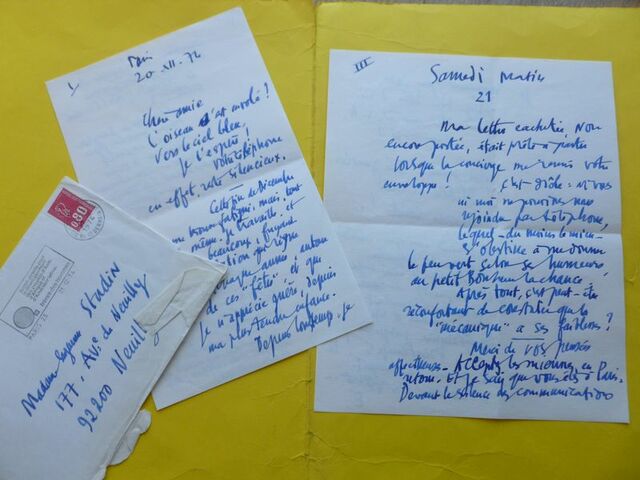 I
Paris
20 - XII - 74
Chère amie
L'oiseau s'est envolé !
Vers le ciel bleu,
Je l'espère !
Votre téléphone
en effet, reste silencieux.
Cette fin de Décembre
me trouve fatigué, mais, tout de
même, je travaille, et
beaucoup, fuyant
que règne
chaque année autour
de ces "fêtes" et que
je n'apprécie guère, depuis
ma plus tendre enfance.
Depuis longtemps, je
III
Samedi matin
21
Ma lettre cachetée, non
encore postée, était prête à partir
lorsque la concierge me remit votre
enveloppe ! C'est drôle : ni vous
ni moi ne pouvions nous
rejoindre par téléphone,
lequel - du moins le mien -
s'obstine à me donner
le feu vert selon ses humeurs
au petit Bonheur la chance.
Après tout, c'est peut-être
réconfortant de constater que la
"mécanique" a ses faiblesses !
Merci de vos pensées
affectueuses - Acceptez les miennes en
retour. Et je sais que vous êtes à Paris.
Devant le silence des communications
0.80
Madame Suzanne Studin
177, Ave de Neuilly
92200 Neuilly